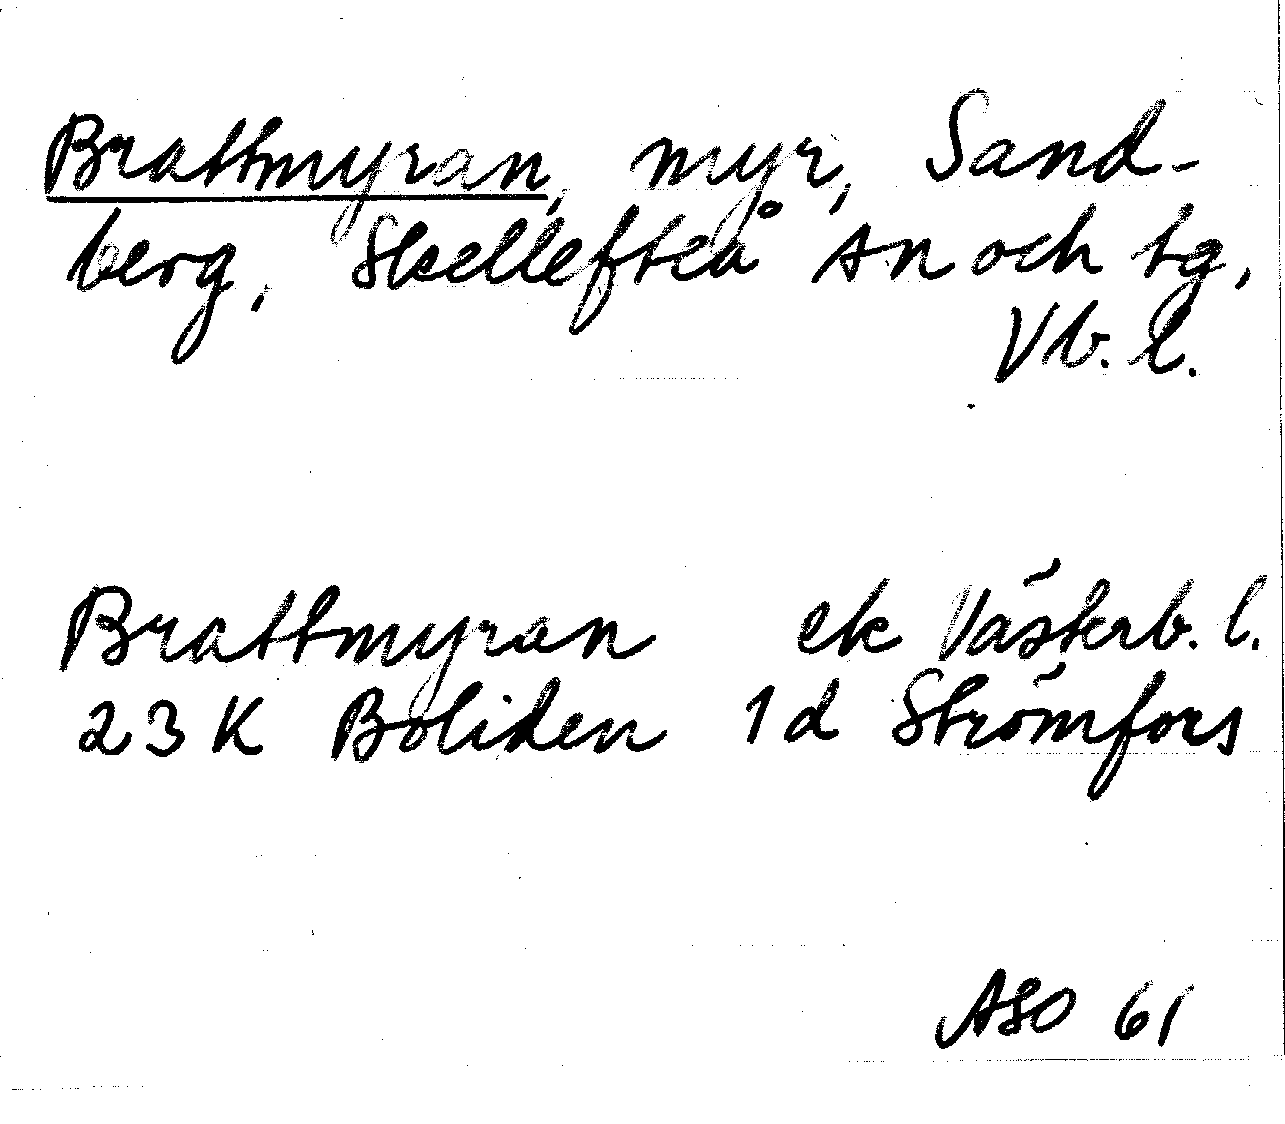 Brattmyran, myr, Sand-
berg, Skellefteå sn och tg,
Vb. l.
Brattmyran ek Västerb. l.
23 K Boliden 1 d Strömfors
ASO 61